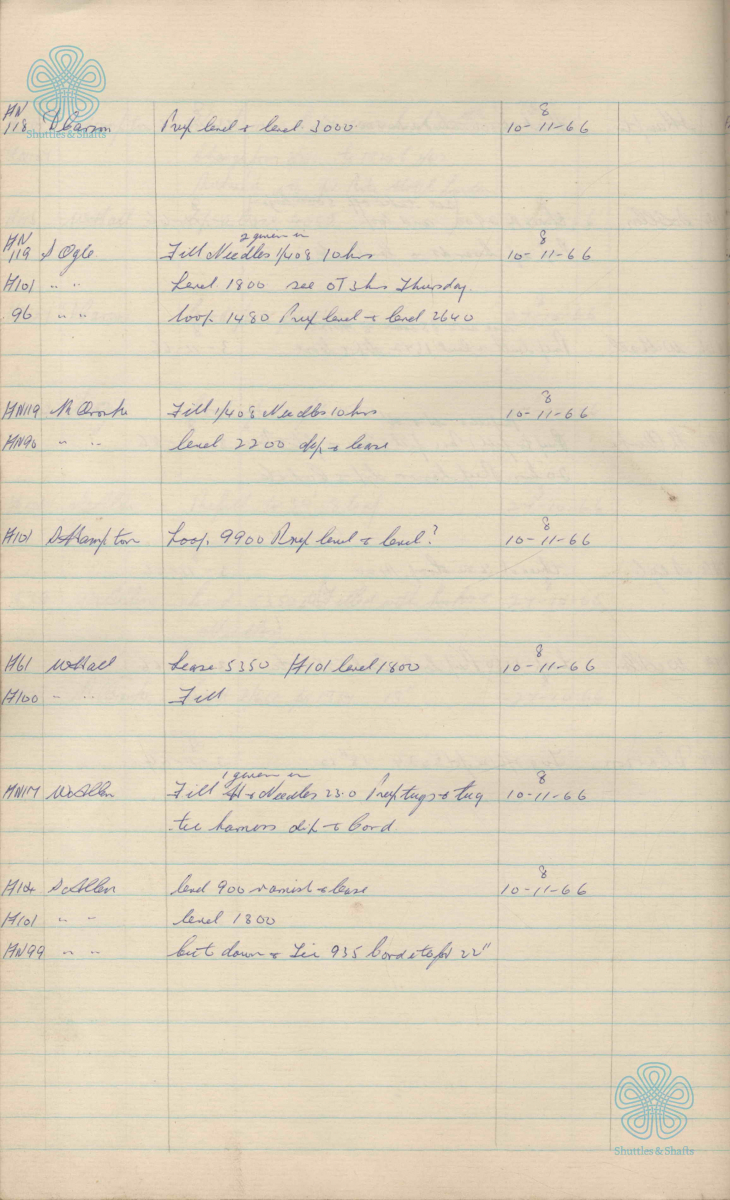 HN
8
118 D Carson Prep level & level 3000 10-11-66
Shuttles & Shafts
HN 2 given in 8
119 S Ogle Fill Needles 1/408 10 hrs 10-11-66
H101 " " Level 1800 see OT 3 hrs Thursday
96 " " loop 1480 Prep level & level 2640
8
HN119 Fill 1/408 Needles 10 hrs 10-11-66
HN90 " " level 2200 dip & lease
8
H101 S Hampton Loop 9900 Prep level & level? 10-11-66
8
H61 W Hall Lease 5350 H101 level 1800 10-11-66
H100 " " Fill
1 given in 8
HN17 W Allen Fill & Needles 23.0 Prep tugs & tug 10-11-66
tie harness dip & Cord
8
H104 S Allen level 900 varnish & lease 10-11-66
H101 " " level 1800
HN99 " " Cut down & Tie 935 Cords for 22"
Shuttles & Shafts